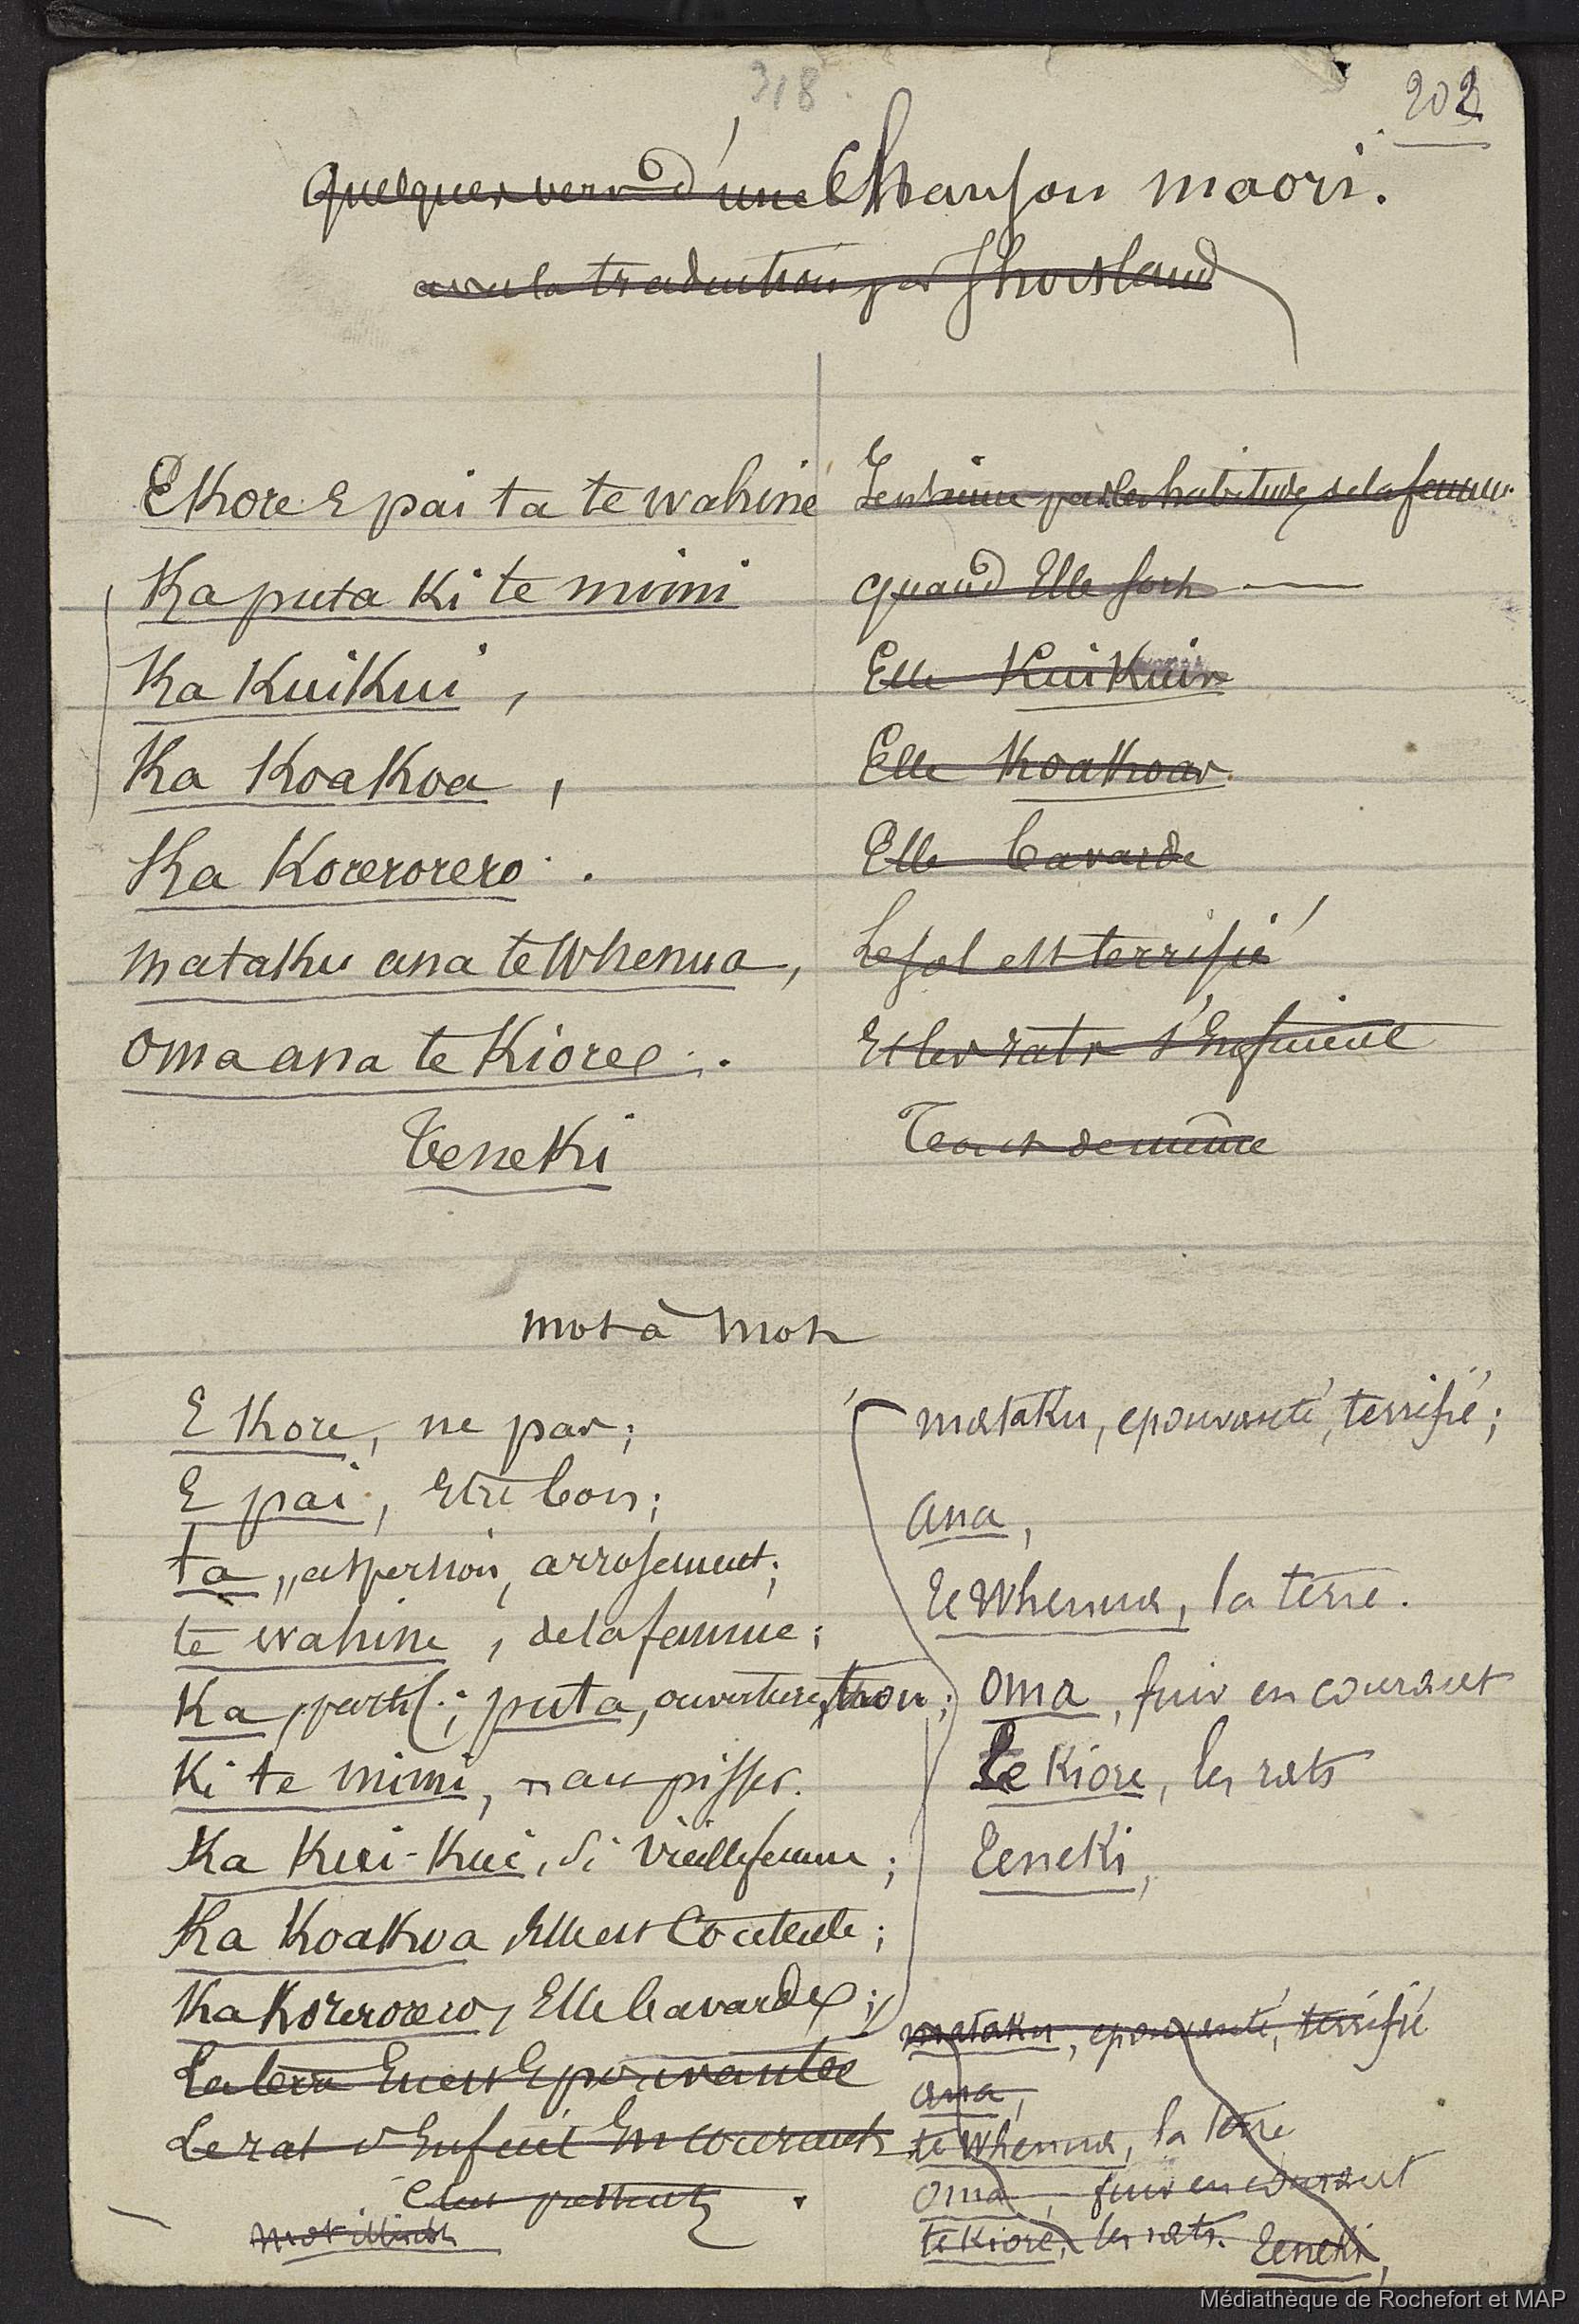 318.
202
quelques vers d'une Chanson maori.
avec la traduction par Thoreland
E Kore E pai ta te wahine
Ka puta Ki te mimi
Ka KuiKui,
Ka KoaKoa,
Ka Korerorero.
mataku ana te Whenua,
Oma ana te Kiore.
Teneki
Je n'aime pas les habitudes de la femme
quand Elle sort —
Elle KuiKuis
Elle KoaKoas.
Elle bavarde
Le sol est terrifié
Et les rats s'Enfuient
Tout de même
mot à mot
E Kore, ne pas;
E pai, Etre bon;
ta, aspersion, arrosement;
te wahine, de la femme;
Ka, partic.; puta, ouverture, trou;
Ki te mimi, au pisser.
Ka Kui-Kui, si vieille femme;
Ka KoaKoa Elle est Contente;
Ka Korerorero, Elle bavarde;
La terre En est Epouvantée
Le rat s'Enfuit En courant
mot illisible
mataku, epouvanté, terrifié;
ana,
te Whenua, la terre.
Oma, fuir en courant
te Kiore, les rats
Teneki,
mataku, epouvanté, terrifié
ana,
te Whenua, la terre
Oma, fuir en courant
te Kiore, les rats. Teneki,
Médiathèque de Rochefort et MAP